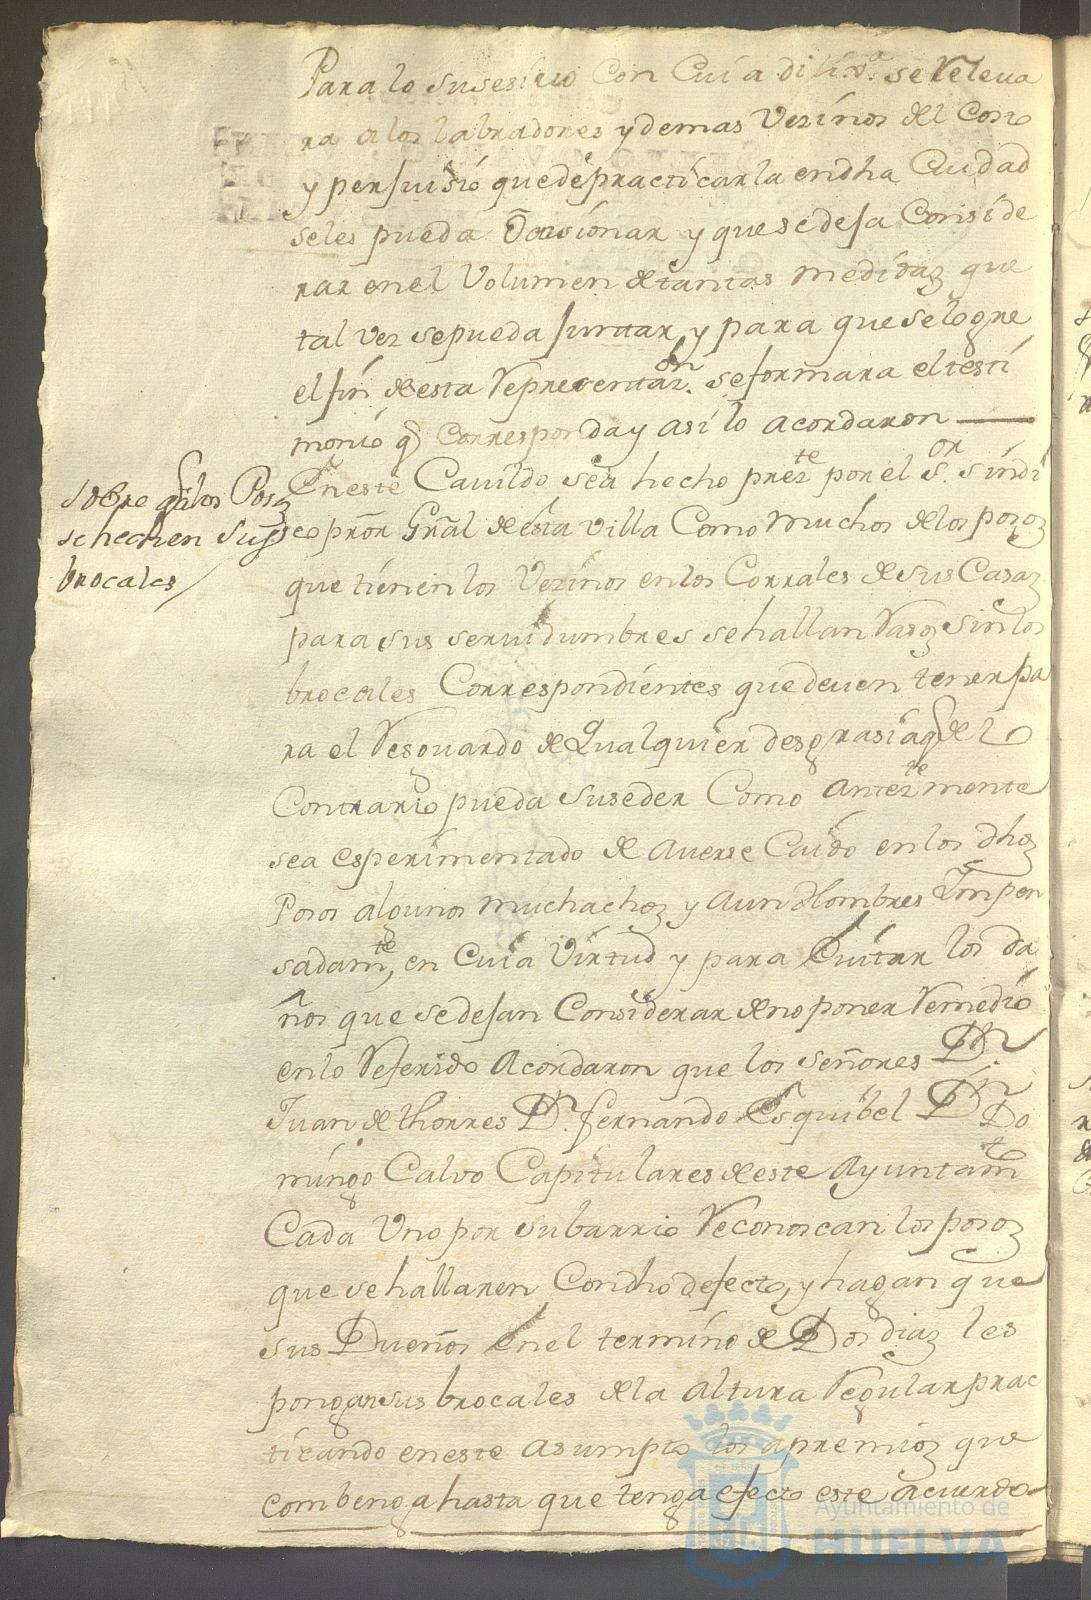 Para lo susesiuo con cuia dilixa. se releua
ra a los labradores y demas vezinos del costo
y perjuisio que de practicarla en dha Ciudad
seles pueda ocasionar y que se deja conside
rar en el volumen de tantas medidas que
tal vez se pueda juntar, y para que se logre
el fin de esta representazon. se formara el testi
monio q corresponda y asi lo acordaron
En este Cavildo sea hecho prezte por el Sor. sindi
co pror Gral de esta villa como muchos de los posos
que tienen los vezinos en los corrales de sus casas
para sus seruidumbres se hallan rasos sin los
brocales correspondientes que deuen tener pa
ra el resguardo de qualquier desgrasia q de lo
contrario pueda suseder como anteztemente
sea esperimentado de averse caido en los dhos
Posos algunos muchachos y aun hombres impen
sadamte, en cuia virtud y para euitar los da
ños que se dejan considerar de no poner remedio
en lo referido acordaron que los señores Dn.
Juan de thorres Dn. fernando Esquibel Dn Do
mingo Calvo Capitulares de este Ayuntamto
cada uno por su barrio reconoscan los posos
que se hallaren con dho defecto, y hagan que
sus Dueños en el termino de Dos dias les
pongan sus brocales de la altura regular prac
ticando en este asumpto los apremios que
combenga hasta que tenga efecto este acuerdo
sobre q los Posos
se hechen sus
brocales
Ayuntamiento de
HUELVA